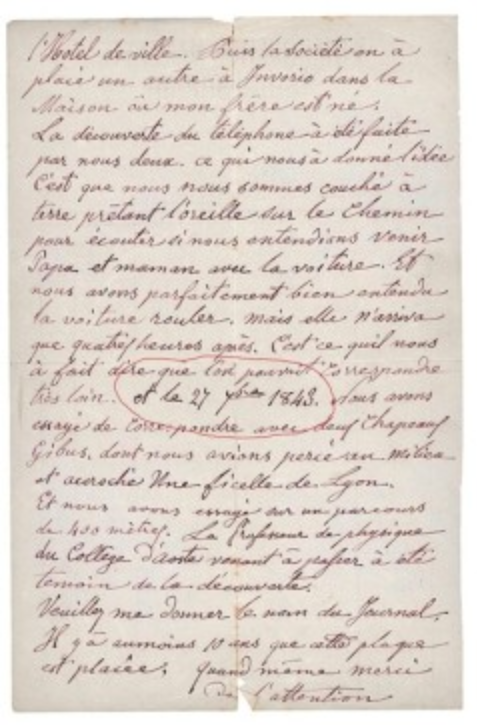 l'Hotel de ville. Puis la Société on à
placé un autre à Invorio dans la
Maison ou mon frère est né.
La découverte du téléphone à été faite
par nous deux. ce qui nous à donné l'idée
C'est que nous nous sommes couché à
terre prêtant l'oreille sur le Chemin
pour écouter si nous entendions venir
Papa et maman avec la voiture. Et
nous avons parfaitement bien entendu
la voiture rouler. mais elle n'arriva
que quatre heures après. C'est ce qu'il nous
à fait dire que l'on pouvait Correspondre
très loin. et le 27 7bre 1843. Nous avons
essayé de Correspondre avec deux Chapeaux
Gibus, dont nous avions percé au milieu
et accroché Une ficelle de Lyon.
Et nous avons essayé sur un parcours
de 400 mètres. Le Professeur de physique
du Collège d'Aoste venant à passer à été
temoin de la découverte.
Veuillez me donner le nom du Journal.
Il y à aumoins 10 ans que cette plaque
est placée. quand même merci
De l'attention